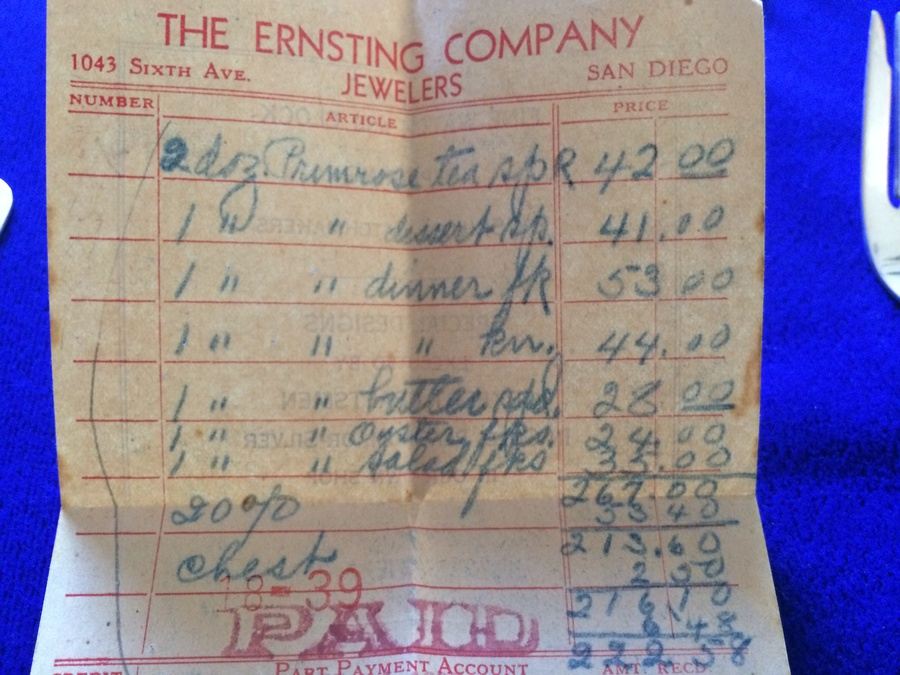 THE ERNSTING COMPANY
1043 SIXTH AVE. JEWELERS SAN DIEGO
NUMBER ARTICLE PRICE
2 doz Primrose tea sp R 42 00
1 " " dessert sp. 41.00
1 " " dinner fk 53 00
1 " " " kn. 44.00
1 " " butter spd. 28 00
1 " " Oyster fks. 24.00
1 " " salad fks 35.00
267.00
20% 53 40
213.60
chest 2 50
8-39 216 10
PAID 6 48
222.58
CREDIT PART PAYMENT ACCOUNT AMT. REC'D